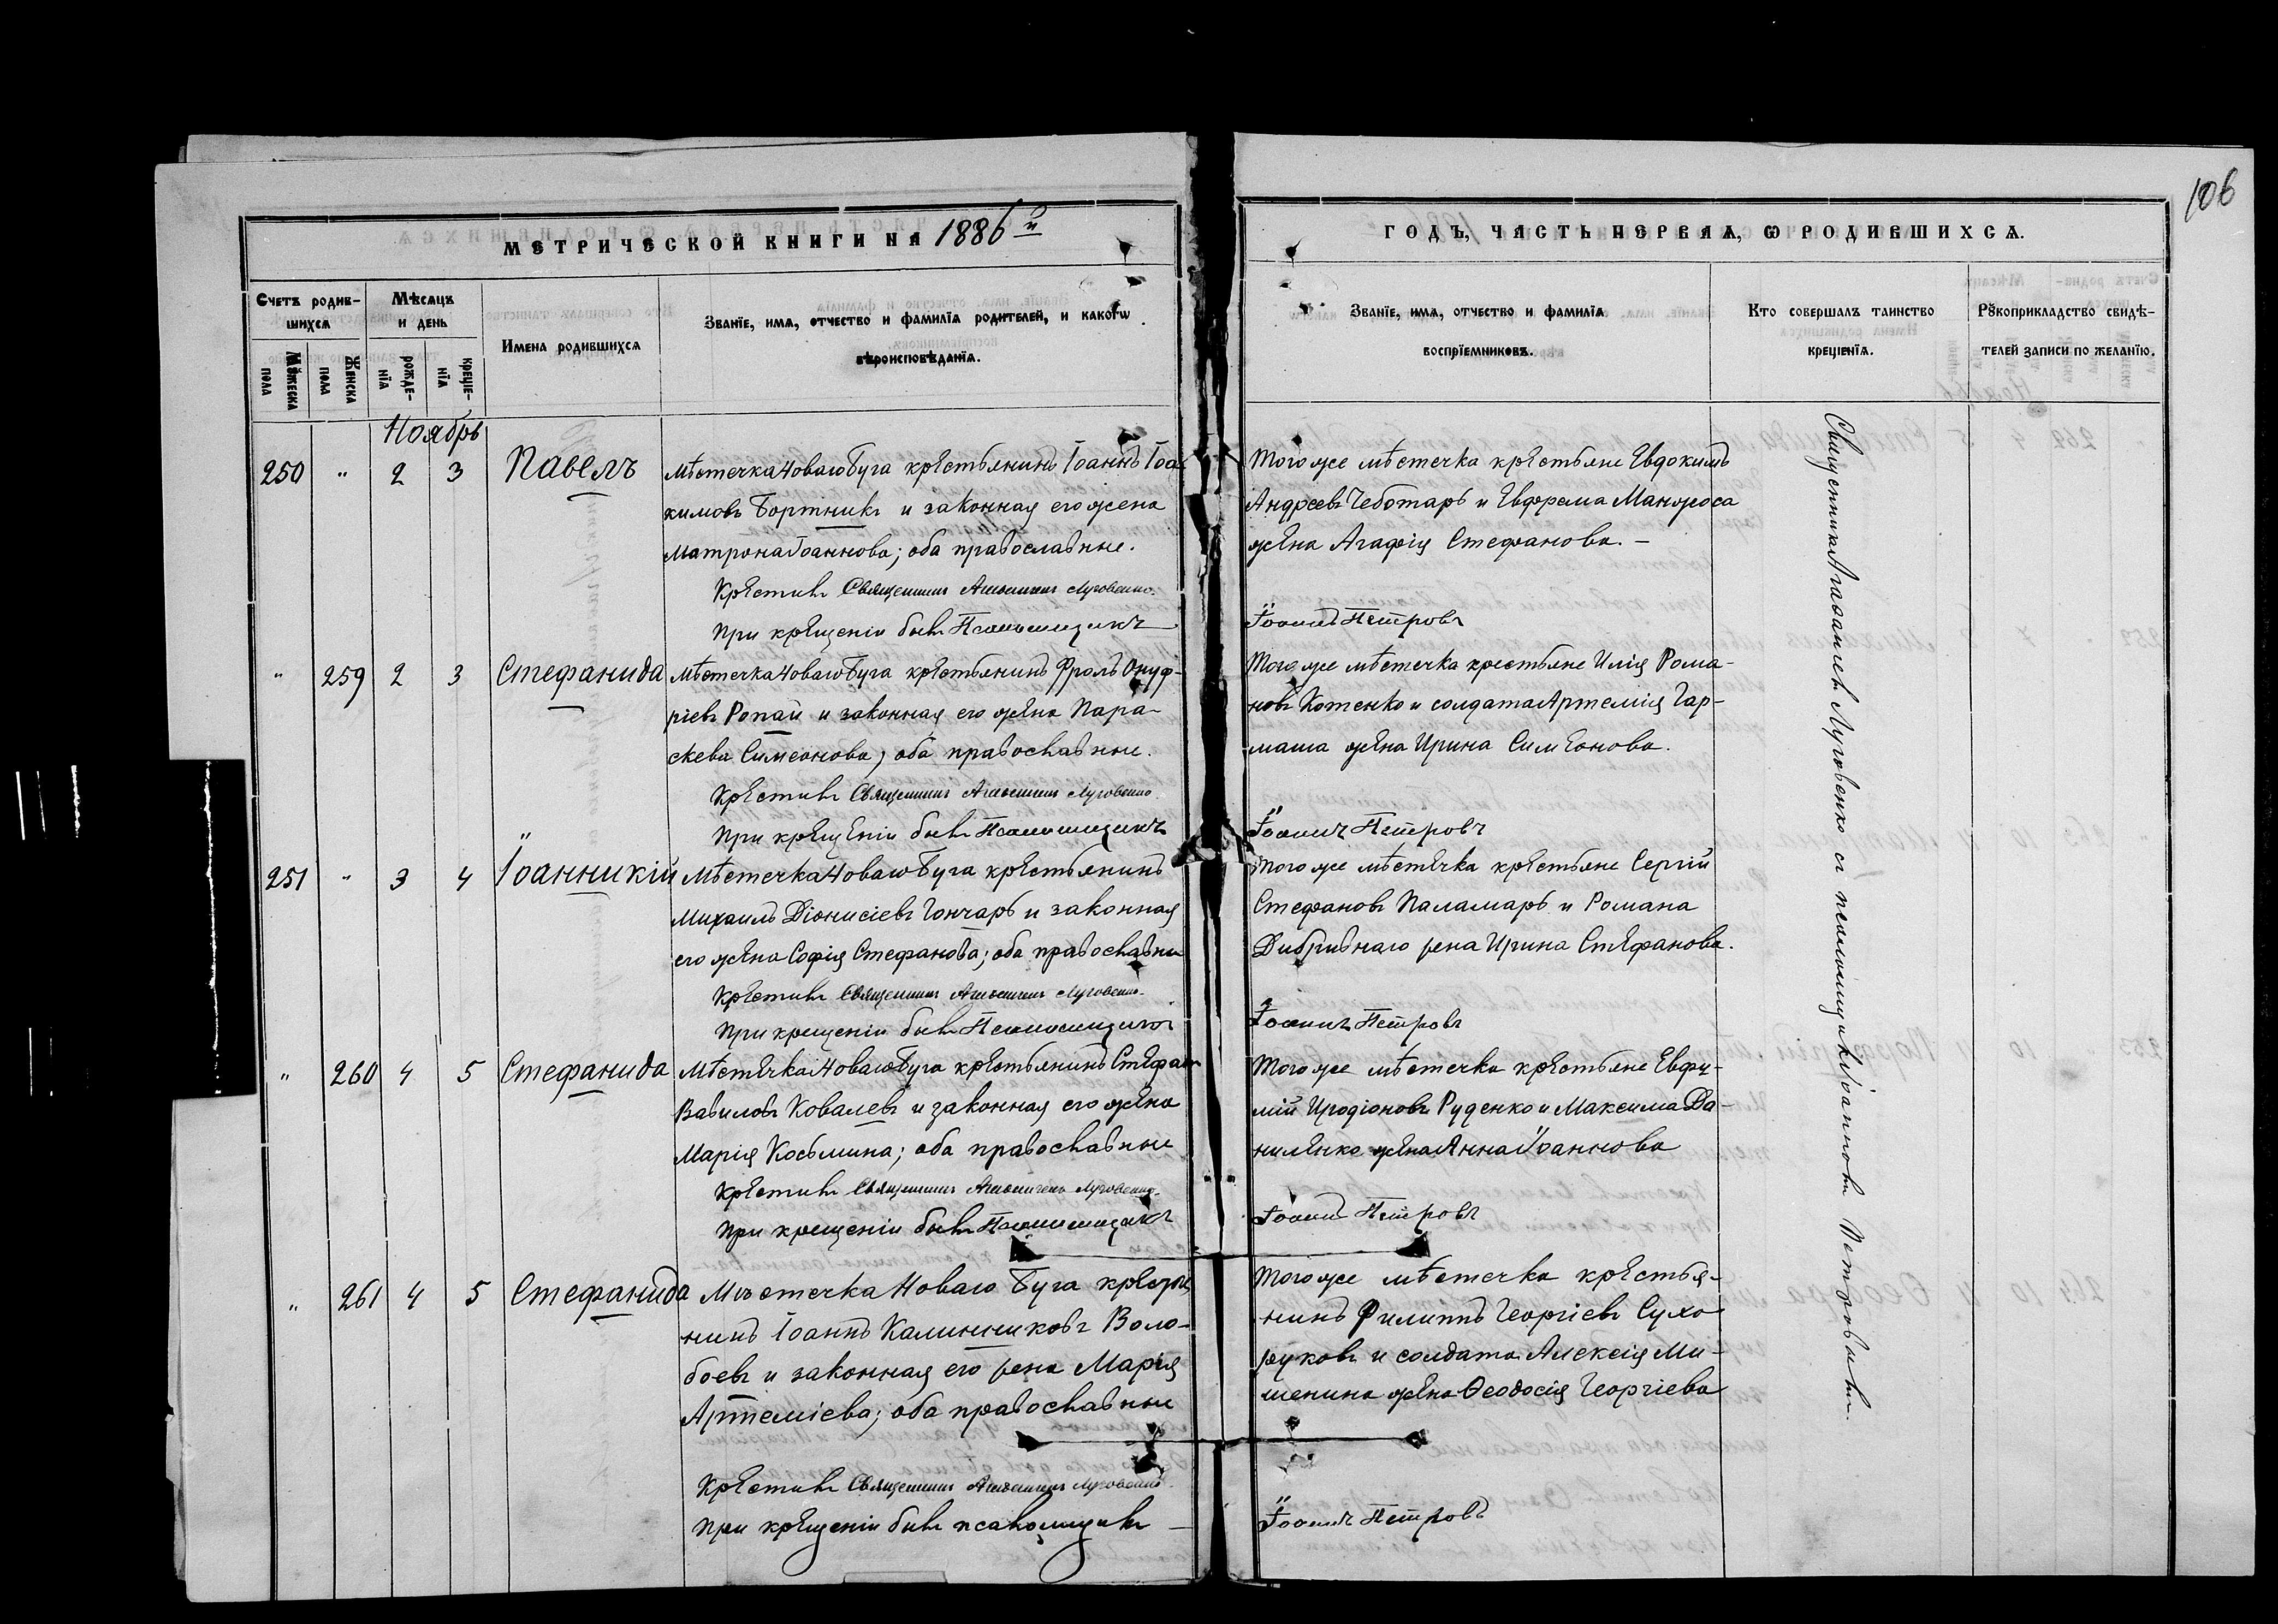 106
МЕТРИЧЕСКОЙ КНИГИ НА 1886й
ГОДЪ, ЧАСТЬ ПЕРВАЯ, Ѡ РОДИВШИХСЯ.
Счетъ родив-
шихся
Мѣсяцъ
и день
Имена родившихся
Званїе, имя, отчество и фамилїя родителей, и какогѡ
вѣроисповѣданїя.
Мꙋжеска
пола
Женска
пола
рожде-
нїя
креще-
нїя
Званїе, имя, отчество и фамилїя
воспрїемниковъ.
Кто совершалъ таинство
крещенїя.
Рꙋкоприкладство свидѣ-
телей записи по желанїю.
Ноябрь
250 " 2 3 Павелъ
Мѣстечка Новаго Буга крестьянинъ Іоаннъ Іоа-
кимовъ Бортникъ и законная его жена
Матрона Іоаннова; оба православные.
Крестилъ Священникъ Луговенко.
При крещеніи былъ Псаломщикъ
Того же мѣстечка крестьяне Евдокимъ
Андреевъ Чеботарь и Ефрема Манжоса
жена Агафія Стефанова. —
Іоаннъ Петровъ
" 259 2 3 Стефанида
Мѣстечка Новаго Буга крестьянинъ Фролъ Онуф-
ріевъ Ропай и законная его жена Пара-
скева Симеонова; оба православные.
Крестилъ Священникъ Луговенко
При крещеніи былъ Псаломщикъ
Того же мѣстечка крестьяне Илія Рома-
новъ Котенко и солдата Артемія Гар-
маша жена Ирина Симеонова.
Іоаннъ Петровъ
251 " 3 4 Іоанникій
Мѣстечка Новаго Буга крестьянинъ
Михаилъ Діонисіевъ Гончаръ и законная
его жена Софія Стефанова; оба православны
Крестилъ Священникъ Луговенко.
При крещеніи былъ Псаломщикъ
Того же мѣстечка крестьяне Сергій
Стефановъ Паламарь и Романа
Дибривнаго жена Ирина Стефанова.
Іоаннъ Петровъ
" 260 4 5 Стефанида
Мѣстечка Новаго Буга крестьянинъ Стефан
Вавиловъ Ковалевъ и законная его жена
Марія Косьмина; оба православные
Крестилъ Священникъ Луговенко.
При крещеніи былъ Псаломщикъ
Того же мѣстечка крестьяне Евфи-
мій Иродіоновъ Руденко и Максима Да-
ниленко жена Анна Іоаннова
Іоаннъ Петровъ
" 261 4 5 Стефанида
Мѣстечка Новаго Буга крестья
нинъ Іоаннъ Калинниковъ Воло-
боевъ и законная его жена Марія
Артеміева; оба православные
Крестилъ Священникъ Луговенко
При крещеніи былъ псаломщикъ —
Того же мѣстечка крестья-
нинъ Филиппъ Георгіевъ Сухо
руковъ и солдата Алексія Ми-
шенина жена Ѳеодосія Георгіева
Іоаннъ Петровъ
Священникъ Луговенко съ псаломщикомъ Іоанномъ Петровымъ.